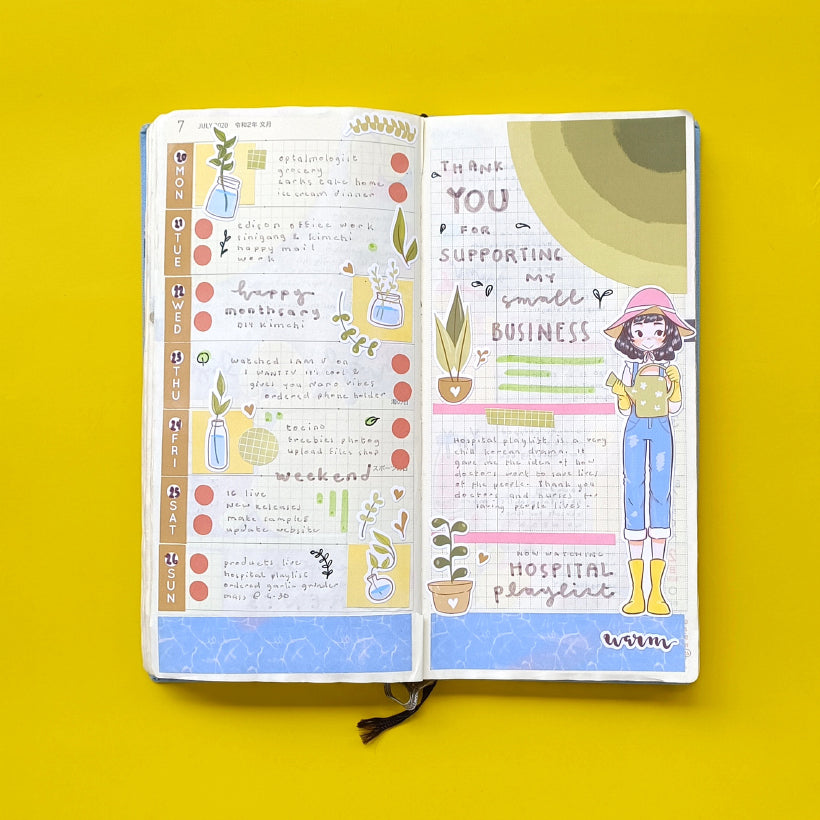 7 JULY 2020 令和2年 文月
20 MON
optalmologist
grocery
earks take home
ice cream dinner
21 TUE
edison office work
sinigang & kimchi
happy mail
work
22 WED
happy
monthsary
DIY kimchi
23 THU
watched I AM U on
I WANT TV it's cool &
gives you Nano vibes
ordered phone holder
海の日
24 FRI
tocino
freebies photog
upload files shop
スポーツの日
weekend
25 SAT
16 live
new releases
make samples
update website
26 SUN
products live
hospital playlist
ordered garlic grinder
mass @ 4:30
THANK
YOU
FOR
SUPPORTING
MY
small
BUSINESS
Hospital playlist is a very
chill korean drama. It
gave me the idea of how
doctors work to save lives
of the people. Thank you
doctors and nurses for
saving people lives.
NOW WATCHING
HOSPITAL
playlist
warm